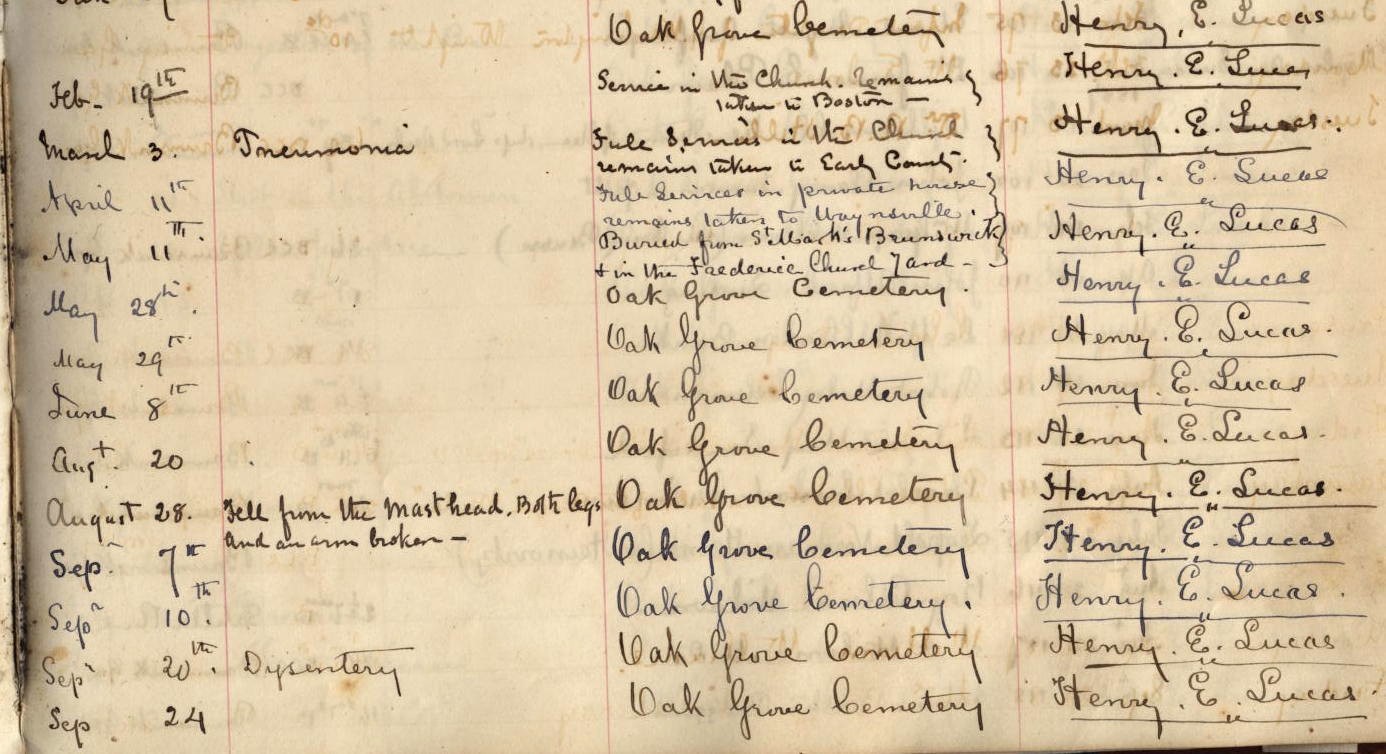 Oak Grove Cemetery Henry. E. Lucas
Feb- 19th Service in the Church. Remains Henry. E. Lucas
taken to Boston —
March 3. Pneumonia Full Services in the Church Henry. E. Lucas.
remains taken to Early County.
April 11th Full Services in private house Henry. E. Lucas
remains taken to Waynsville.
May 11th. Buried from St Mark's Brunswick Henry. E. Lucas
+ in the Frederica Church Yard —
May 28th. Oak Grove Cemetery. Henry. E. Lucas
May 29th Oak Grove Cemetery Henry. E. Lucas.
June 8th Oak Grove Cemetery Henry. E. Lucas
Augt. 20 Oak Grove Cemetery Henry. E. Lucas.
August 28. Fell from the Mast head. Both legs Oak Grove Cemetery Henry. E. Lucas.
and an arm broken —
Sep. 7th Oak Grove Cemetery Henry. E. Lucas
Sep 10th. Oak Grove Cemetery. Henry. E. Lucas.
Sep 20th. Dysentery Oak Grove Cemetery Henry. E. Lucas
Sep 24 Oak Grove Cemetery Henry. E. Lucas.